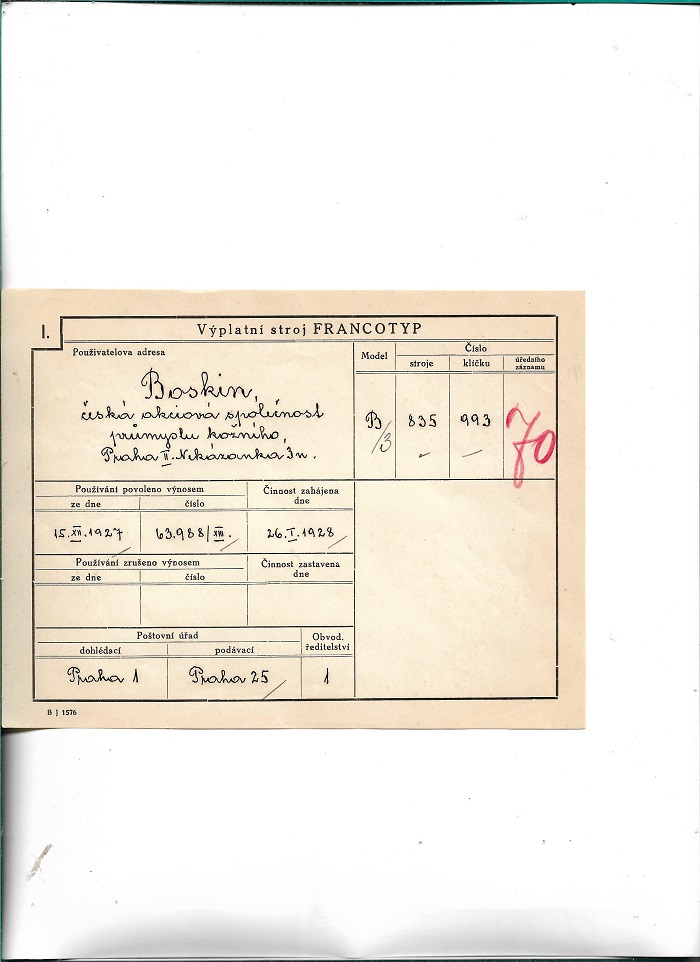 I.
Výplatní stroj FRANCOTYP
Použivatelova adresa
Boskin,
česká akciová společnost
průmyslu kožního,
Praha II. Nekázanka 3n.
Model
Číslo
stroje klíčku úředního záznamu
B/3 835 993 70
Používání povoleno výnosem
ze dne číslo
Činnost zahájena dne
15.XII.1927 63.988/XIII. 26.I.1928
Používání zrušeno výnosem
ze dne číslo
Činnost zastavena dne
Poštovní úřad
dohlédací podávací
Obvod. ředitelství
Praha 1 Praha 25 1
B J 1576